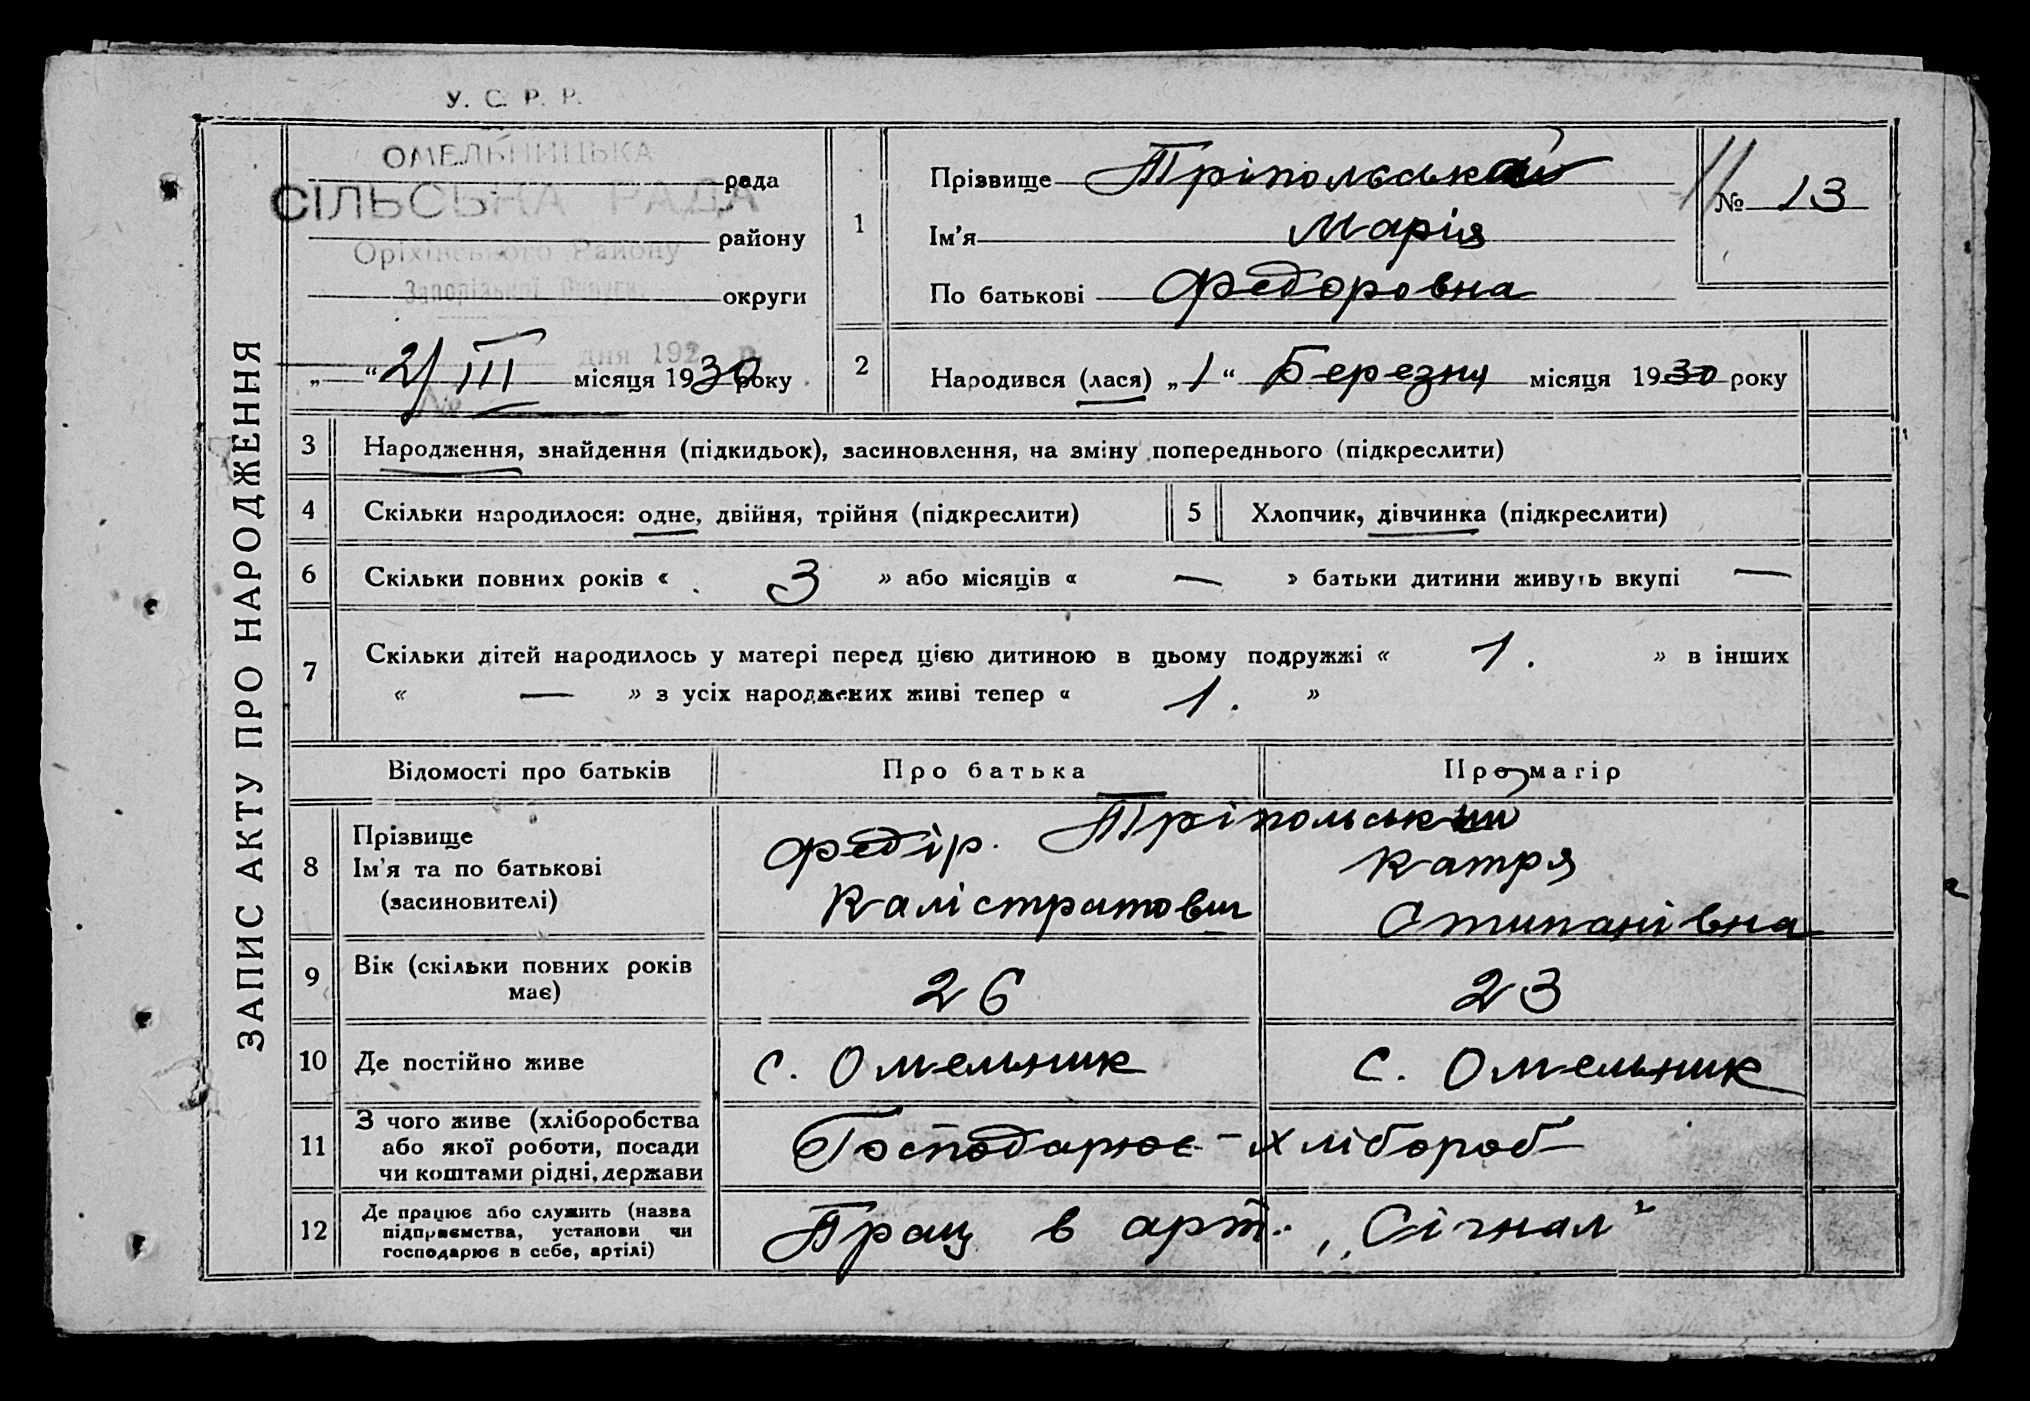 У. С. Р. Р.
ОМЕЛЬНИЦЬКА
рада
СІЛЬСЬКА РАДА
району
Оріхівського Району
Запорізької Округи
округи
дня 192 р.
„ “ 2/III місяця 1930 року
№
ЗАПИС АКТУ ПРО НАРОДЖЕННЯ
1
Прізвище Тріпольський
Ім'я Марія
По батькові Федоровна
№ 13
2
Народився (лася) „1“ Березня місяця 1930 року
3 Народження, знайдення (підкидьок), засиновлення, на зміну попереднього (підкреслити)
4 Скільки народилося: одне, двійня, трійня (підкреслити) 5 Хлопчик, дівчинка (підкреслити)
6 Скільки повних років « 3 » або місяців « — » батьки дитини живуть вкупі —
7 Скільки дітей народилось у матері перед цією дитиною в цьому подружжі « 1. » в інших
« — » з усіх народжених живі тепер « 1. »
Відомості про батьків Про батька Про матір
8 Прізвище
Ім'я та по батькові
(засиновителі)
Тріпольський
Федір.
Калістратович
Катря
Стипанівна
9 Вік (скільки повних років
має)
26 23
10 Де постійно живе с. Омельник с. Омельник
11 З чого живе (хліборобства
або якої роботи, посади
чи коштами рідні, держави
Господарює - хлібороб
12 Де працює або служить (назва
підприємства, установи чи
господарює в себе, артілі)
Прац в арт. „Сігнал"